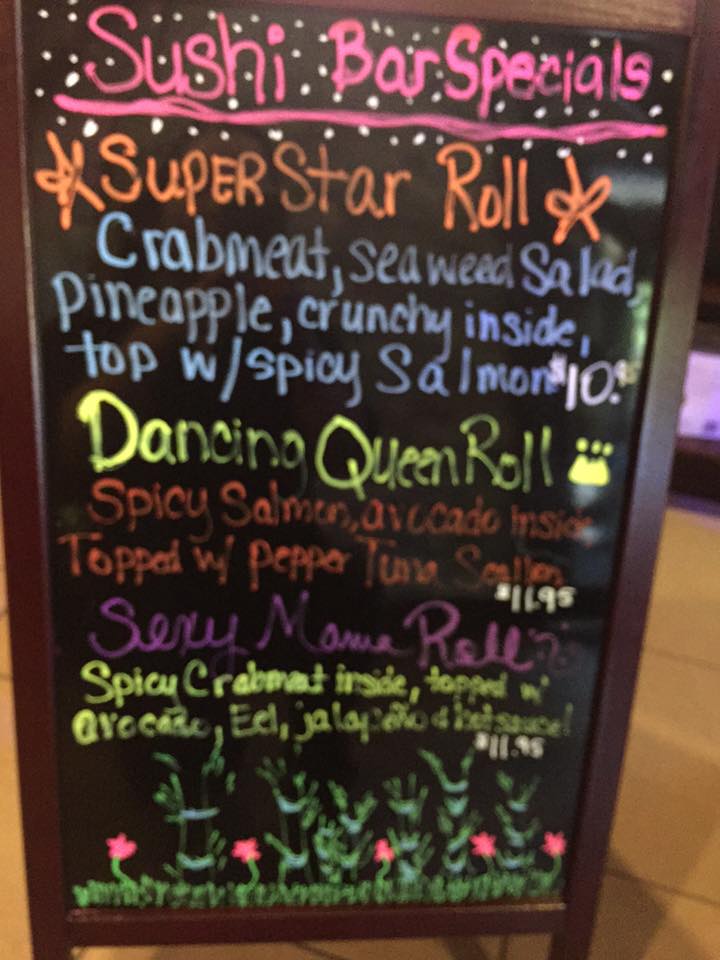 Sushi Bar Specials
SUPER Star Roll
Crabmeat, seaweed Salad,
Pineapple, crunchy inside,
top w/spicy Salmon $10.95
Dancing Queen Roll
Spicy Salmon, avocado inside
Topped w/ pepper Tuna
$11.95
Sexy Mama Roll
Spicy Crabmeat inside, topped w/
avocado, Eel, jalapeño & hot sauce!
$11.95